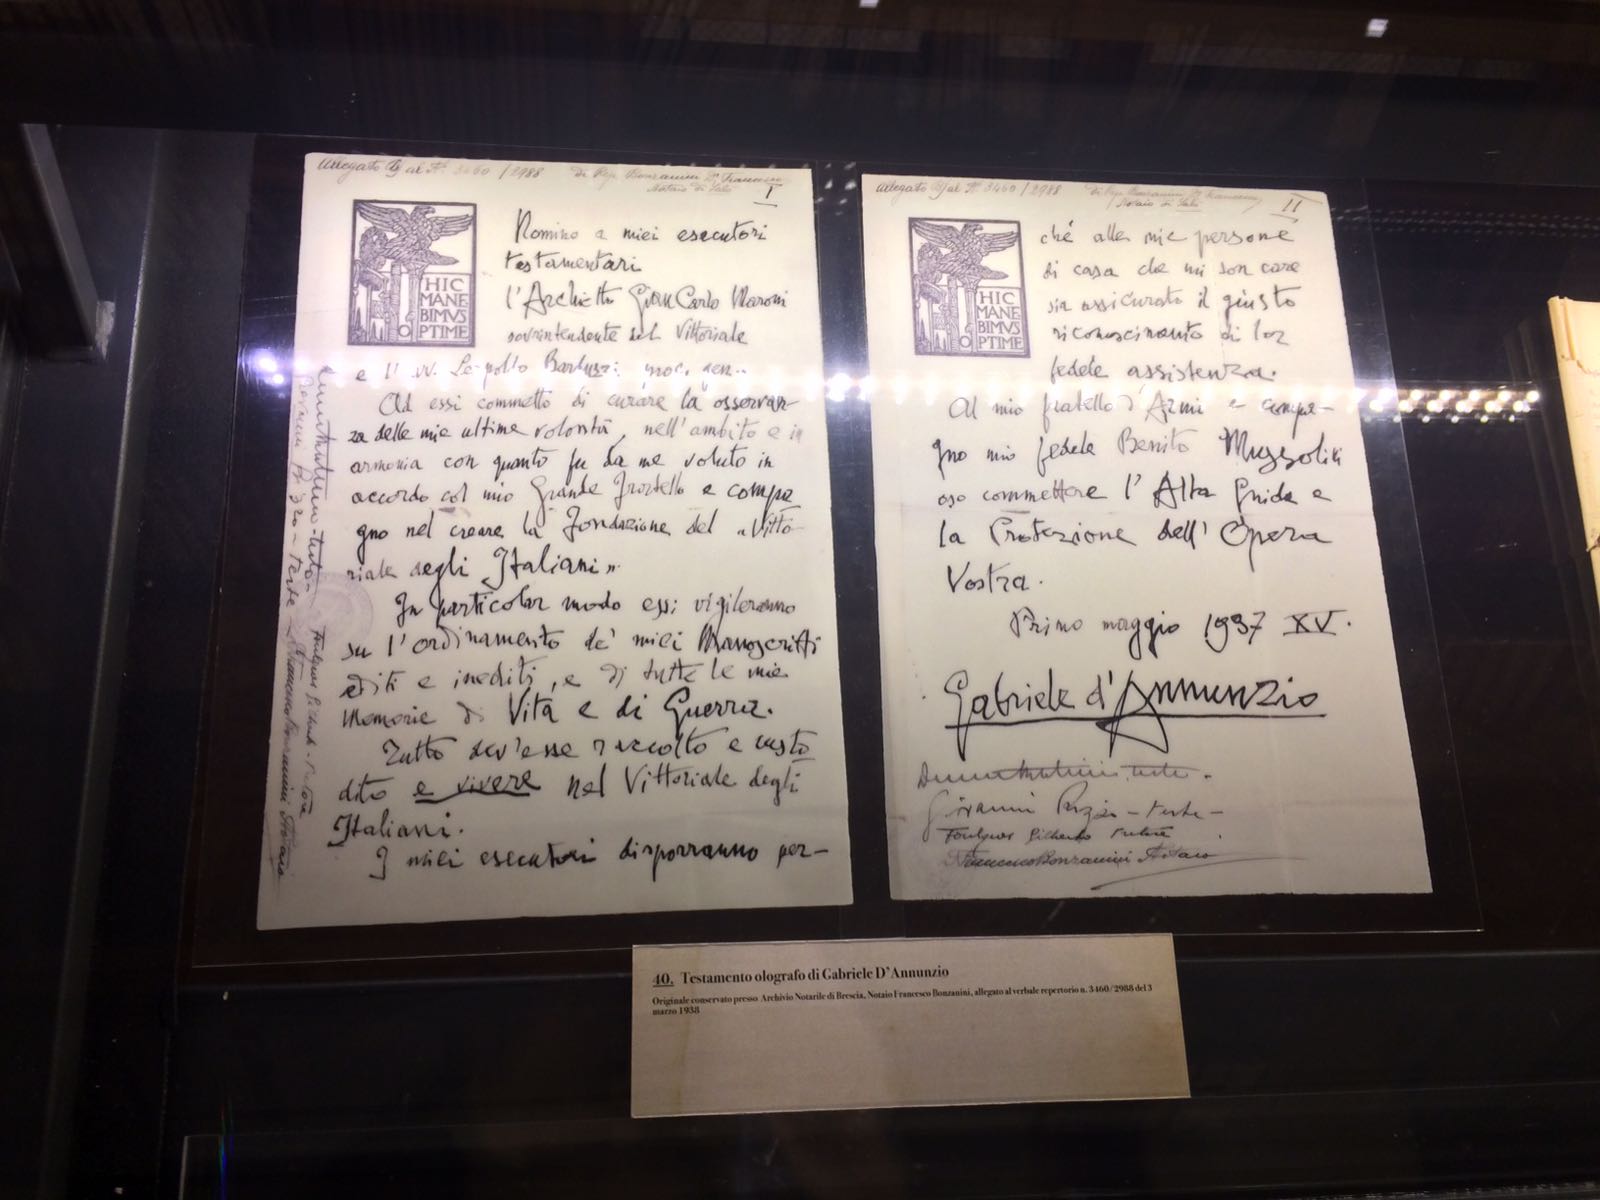 Allegato al N. 3460/2988 di Rep. Bonzanini Dr. Francesco
Notaio di Salò
I
HIC
MANE
BIMVS
OPTIME
Nomino a miei esecutori
testamentari
l'Architetto GianCarlo Maroni
sovrintendente del Vittoriale
e l'Avv. Leopoldo Barduzzi proc. gen.
Ad essi commetto di curare la osservan-
za delle mie ultime volontà, nell'ambito e in
armonia con quanto fu da me voluto in
accordo col mio Grande Fratello e compa
gno nel creare la Fondazione del «Vitto-
riale degli Italiani».
In particolar modo essi vigileranno
su l'ordinamento de' miei Manoscritti
editi e inediti, e di tutte le mie
Memorie di Vita e di Guerra.
Tutto dev'esse raccolto e custo
dito e vivere nel Vittoriale degli
Italiani.
I miei esecutori disporranno per-
Francesco Bonzanini Notaio
Allegato al N. 3460/2988 di Rep. Bonzanini Dr. Francesco
Notaio di Salò
II
HIC
MANE
BIMVS
OPTIME
ché alle mie persone
di casa che mi son care
sia assicurato il giusto
riconoscimento di lor
fedele assistenza.
Al mio fratello d'Armi e compa-
gno mio fedele Benito Mussolini
oso commettere l'Alta Guida e
la Protezione dell'Opera
Vostra.
Primo maggio 1937 XV.
Gabriele d'Annunzio
teste.
Giovanni - teste -
Francesco Bonzanini Notaio
40. Testamento olografo di Gabriele D'Annunzio
Originale conservato presso Archivio Notarile di Brescia, Notaio Francesco Bonzanini, allegato al verbale repertorio n. 3460/2988 del 3
marzo 1938